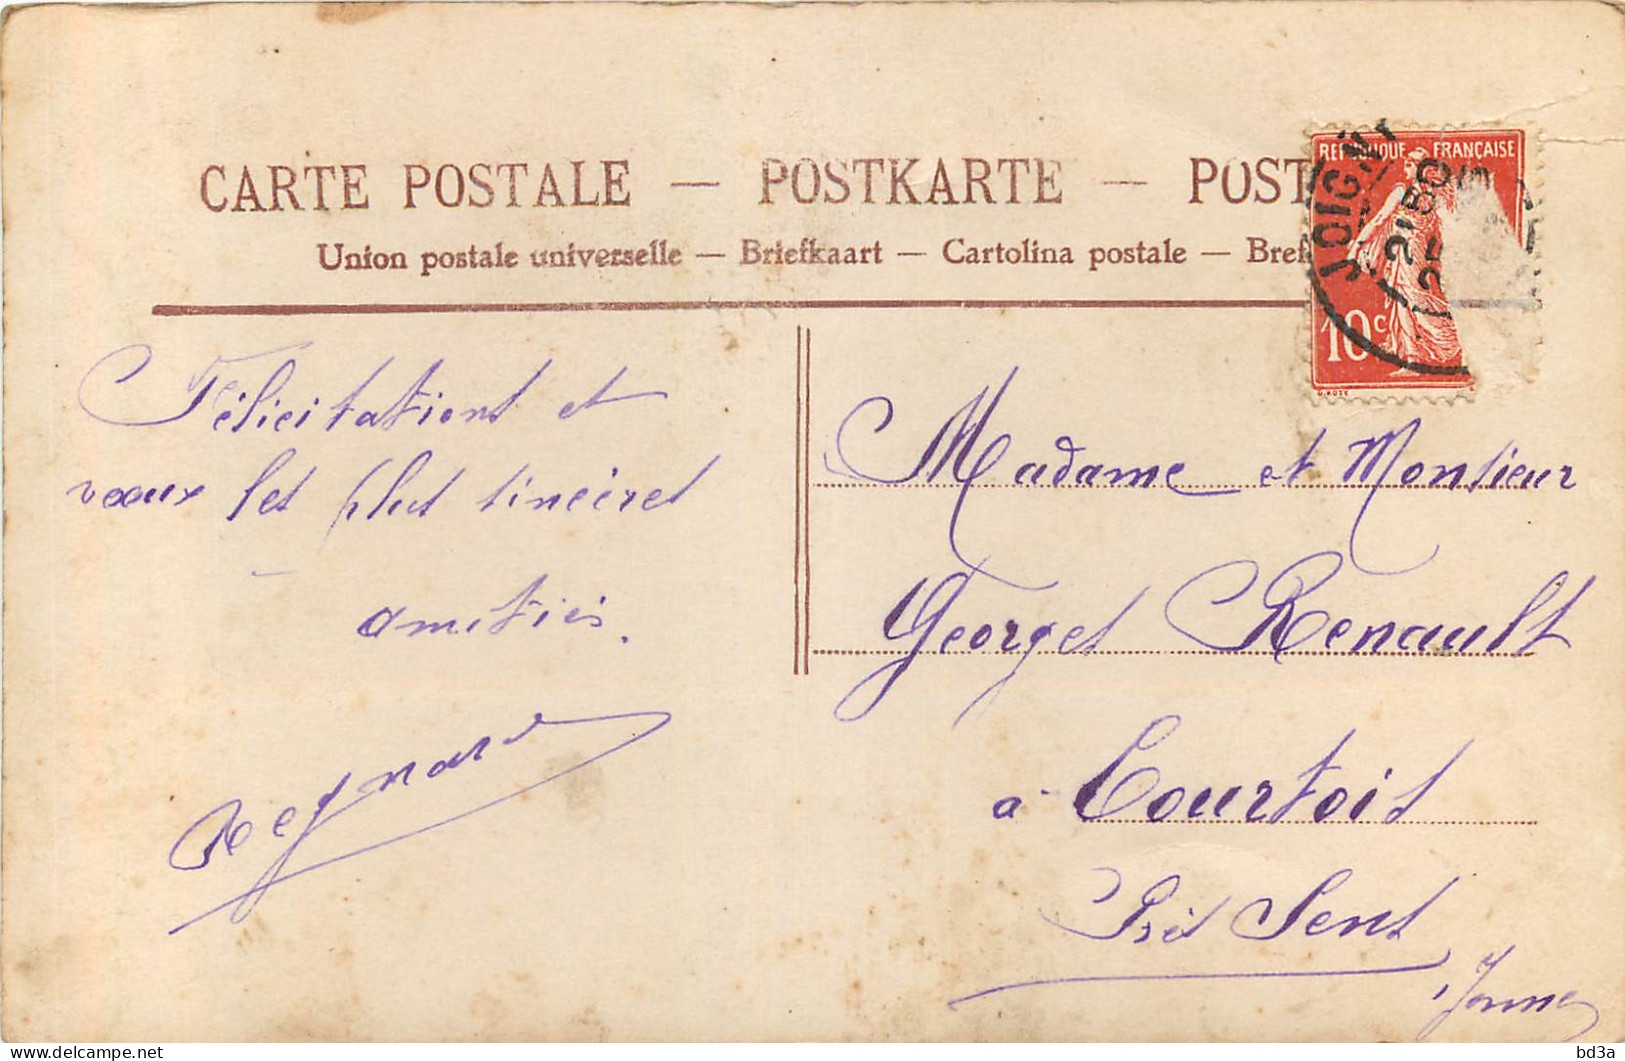 CARTE POSTALE — POSTKARTE — POST
Union postale universelle — Briefkaart — Cartolina postale — Bref
REPUBLIQUE FRANÇAISE
JOIGNY
10c
Félicitations et
vœux les plus sincères
amitiés.
Regnard
Madame et Monsieur
Georges Renault
à Courtois
Près Sens
Yonne
bd3a